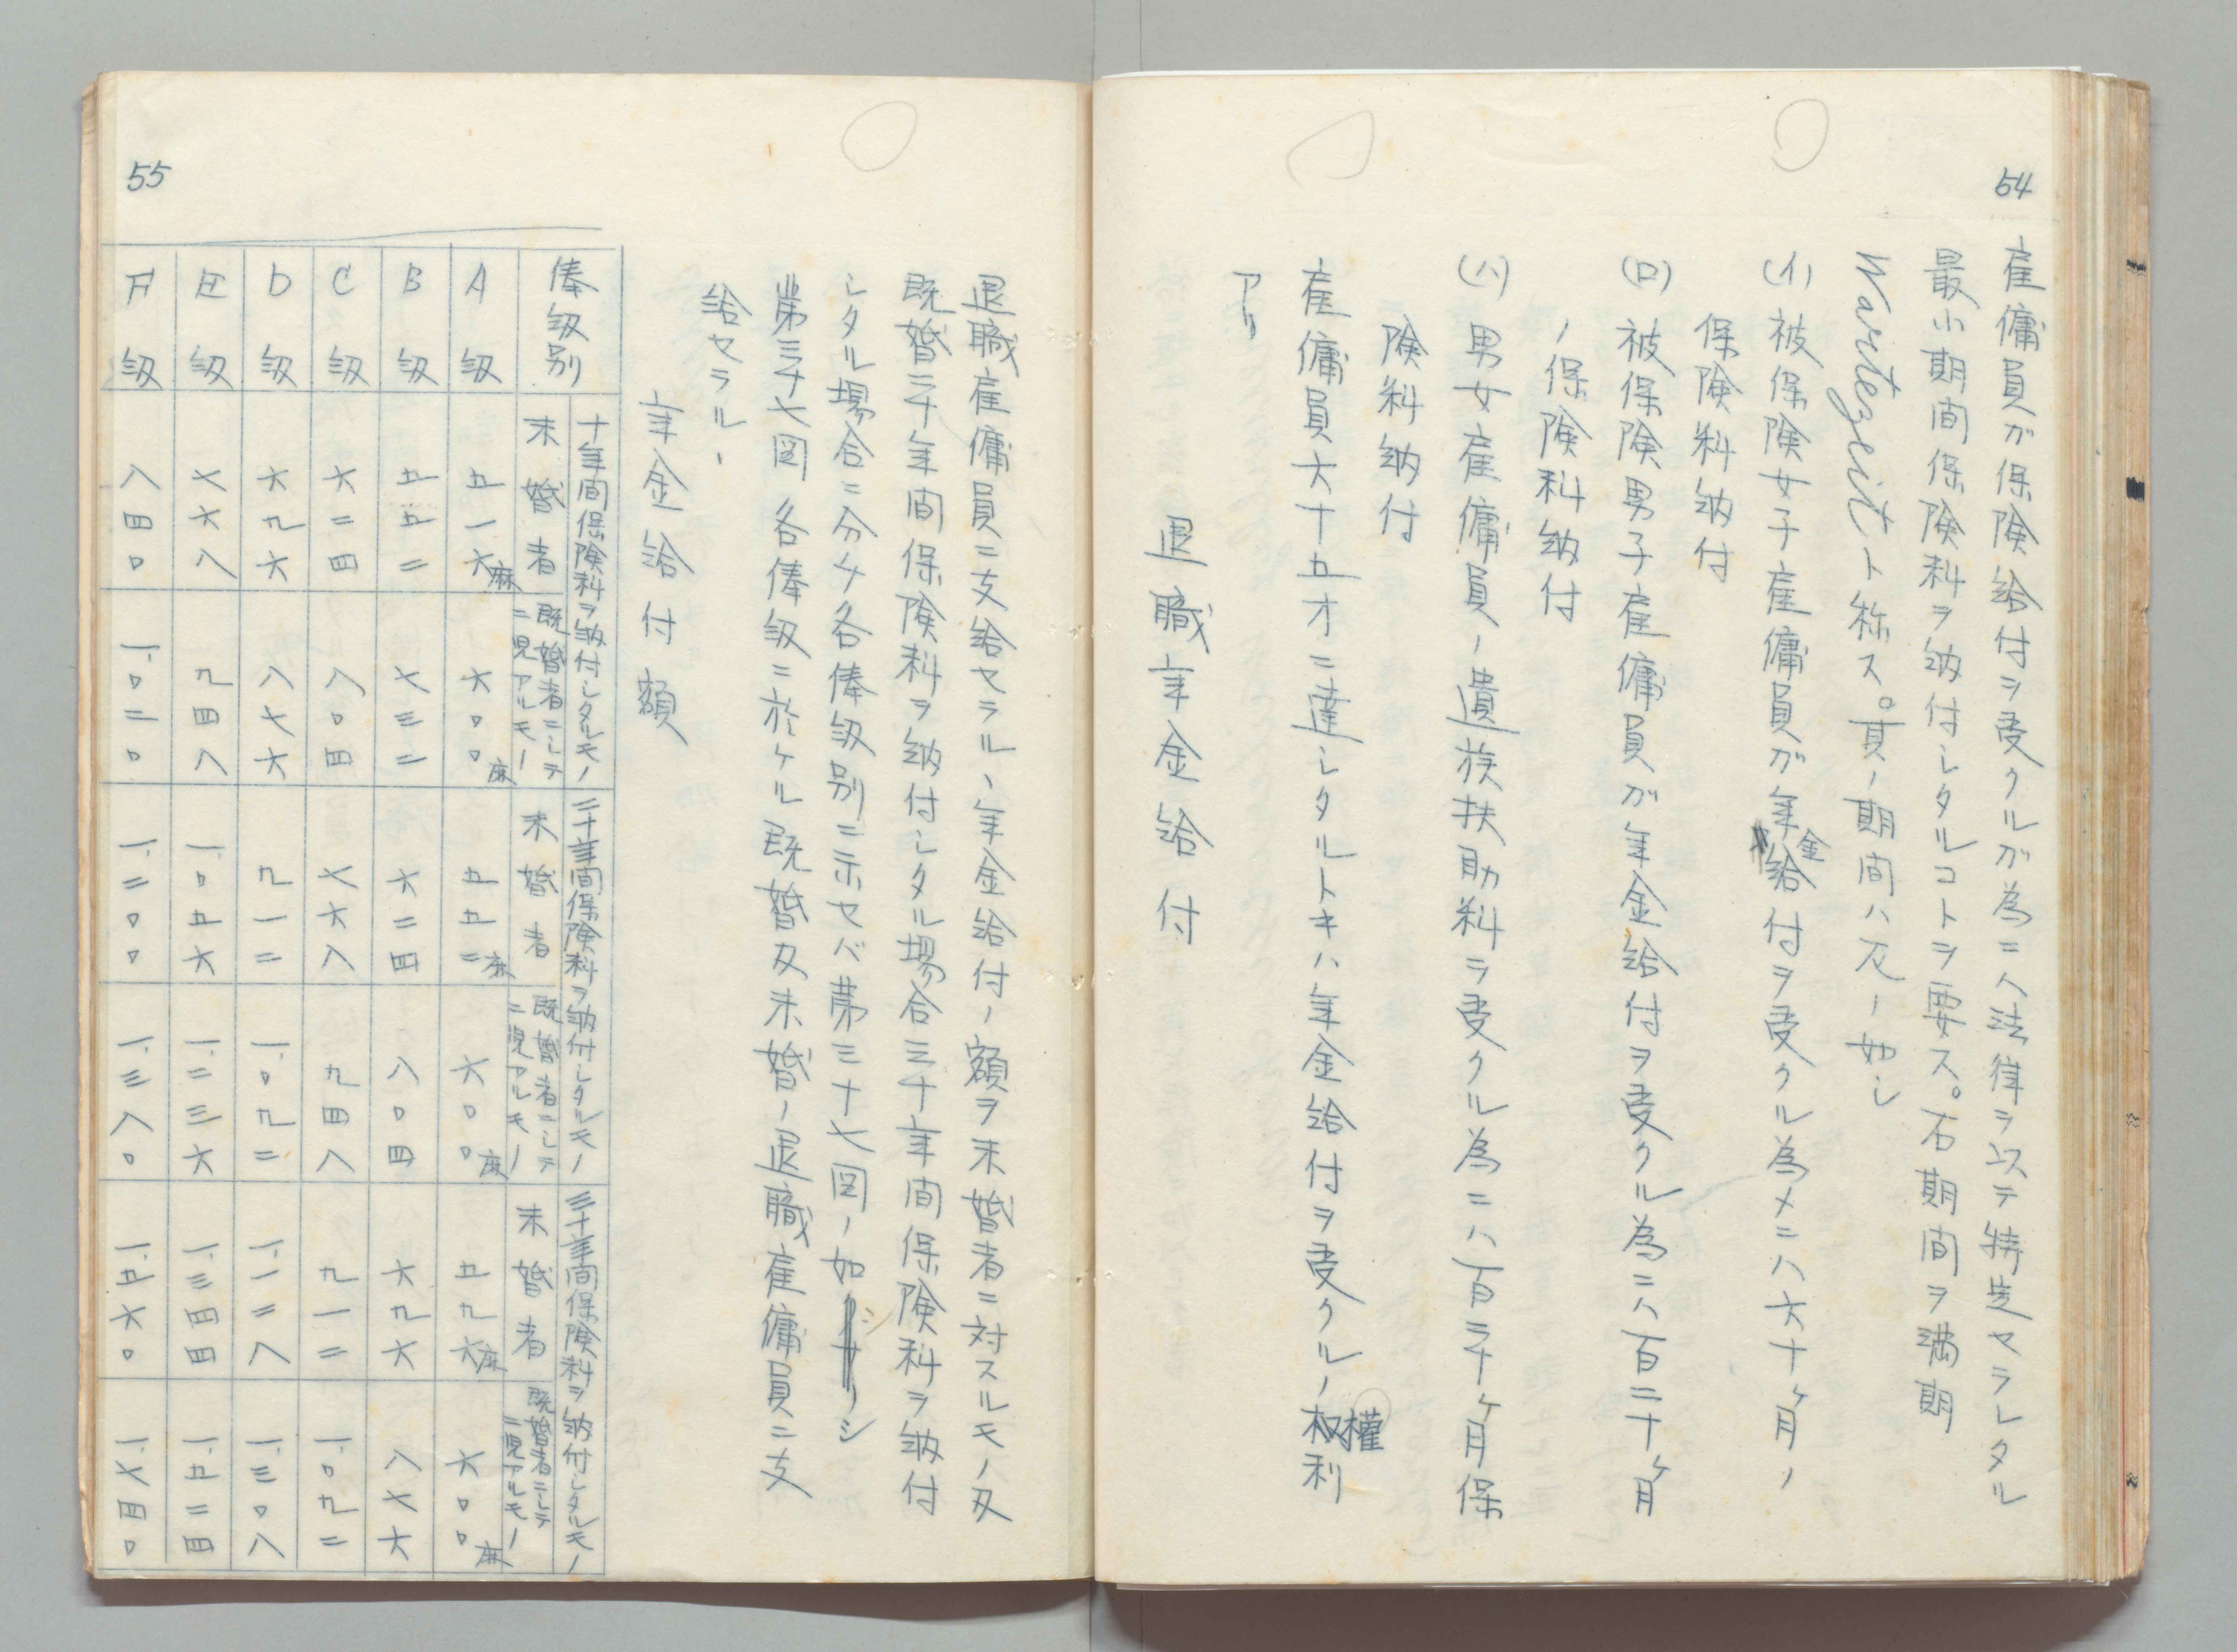 54
雇傭員ガ保険給付ヲ受クルガ為ニハ法律ヲ以テ特定セラレタル
最小期間保険料ヲ納付シタルコトヲ要ス。右期間ヲ満期
Wartezeitト称ス。其ノ期間ハ左ノ如シ
(イ)被保険女子雇傭員ガ年金給付ヲ受クル為メニハ六十ヶ月ノ
保険料納付
(ロ)被保険男子雇傭員ガ年金給付ヲ受クル為ニハ百二十ヶ月
ノ保険料納付
(ハ)男女雇傭員ノ遺族扶助料ヲ受クル為ニハ百二十ヶ月保
険料納付
雇傭員六十五才ニ達シタルトキハ年金給付ヲ受クルノ权權利
アリ
退職年金給付
55
退職雇傭員ニ支給セラルヽ年金給付ノ額ヲ未婚者ニ対スルモノ及
既婚二十年間保険料ヲ納付シタル場合三十年間保険料ヲ納付
シタル場合ニ分チ各俸級別ニ示セバ第三十七図ノ如シ
第三十七図 各俸級ニ於ケル既婚及未婚ノ退職雇傭員ニ支
給セラルヽ
年金給付額
俸級別
十年間保険料ヲ納付シタルモノ 二十年間保険料ヲ納付シタルモノ 三十年間保険料ヲ納付シタルモノ
未婚者 既婚者ニシテ二児アルモノ 未婚者 既婚者ニシテ二児アルモノ 未婚者 既婚者ニシテ二児アルモノ
A級 五一六麻 六〇〇麻 五五二麻 六〇〇麻 五九六麻 六〇〇麻
B級 五五二 七三二 六二四 八〇四 六九六 八七六
C級 六二四 八〇四 七六八 九四八 九一二 一、〇九二
D級 六九六 八七六 九一二 一、〇九二 一、一二八 一、三〇八
E級 七六八 九四八 一、〇五六 一、二三六 一、三四四 一、五二四
F級 八四〇 一、〇二〇 一、二〇〇 一、三八〇 一、五六〇 一、七四〇